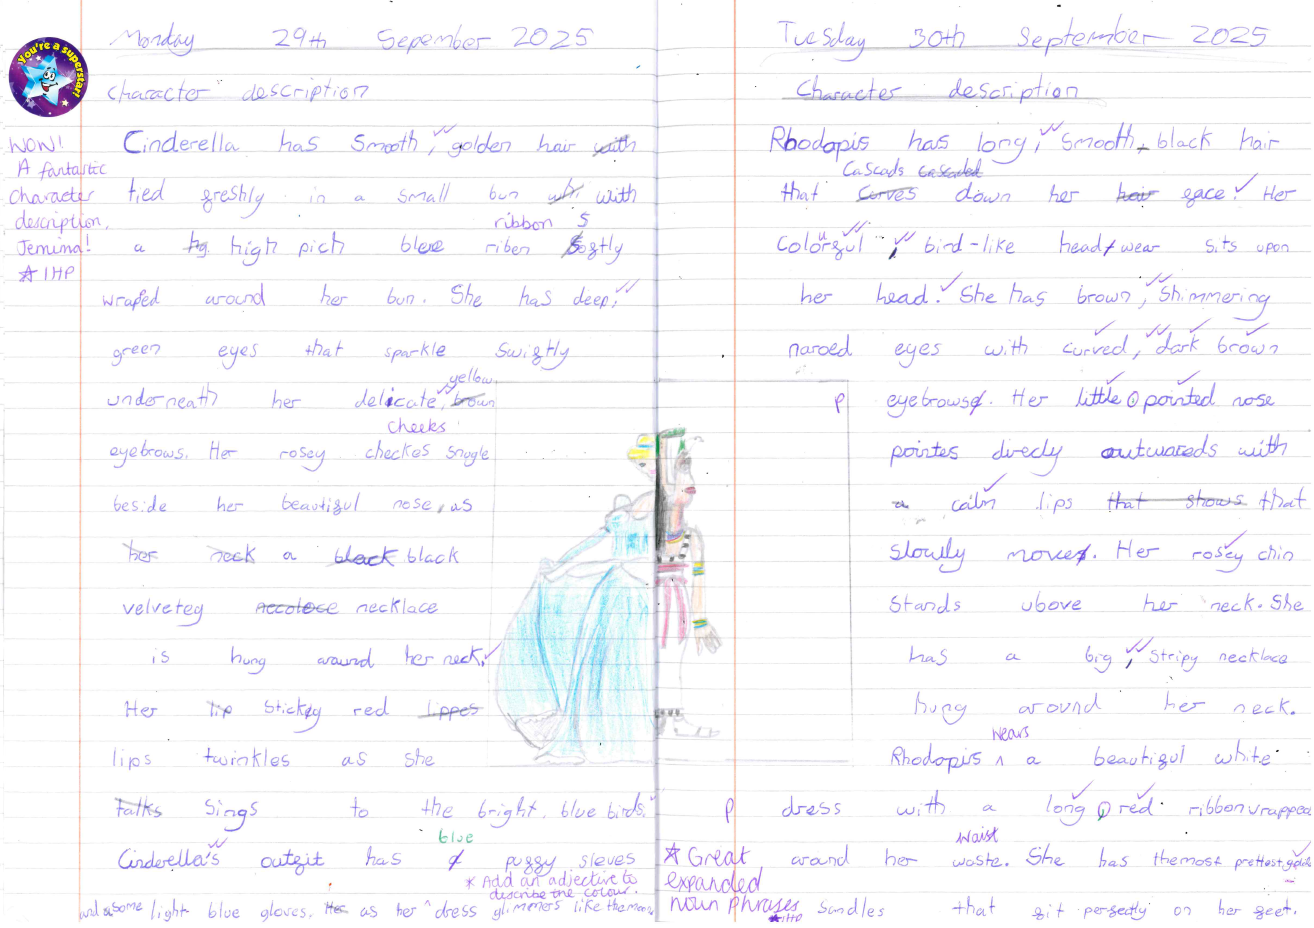 You're a superstar!
Monday 29th Sepember 2025
Character description
WOW!
A fantastic
character
description,
Jemima!
☆ IHP
Cinderella has smooth, golden hair with
tied freshly in a small bun with
ribbon S
a high pich blue riben softly
wraped around her bun. She has deep,
green eyes that sparkle swiftly
yellow
underneath her delicate, brown
cheeks
eyebrows. Her rosey checkes snugle
beside her beautiful nose, as
her neck a black black
velvetey necklace
is hung around her neck.
Her lip sticky red lippes
lips twinkles as she
talks sings to the bright, blue birds.
blue
Cinderella's outfit has puffy sleves
* Add an adjective to
describe the colour.
and a some light blue gloves. as her dress glimmers like the moon
Tuesday 30th September 2025
Character description
Rhodopis has long, smooth, black hair
Cascads Cascaded
that curves down her hair face. Her
colourful, bird-like head wear sits upon
her head. She has brown, shimmering
naroed eyes with curved, dark brown
p eyebrows. Her little, pointed nose
pointes direcly outwareds with
a calm lips that shows that
slowly moves. Her rosey chin
stands above her neck. She
has a big, stripy necklace
hung around her neck.
wears
Rhodopis ^ a beautiful white
p dress with a long, red ribbon wrapped
waist
around her waste. She has the most prettest, golden
☆ Great
expanded
noun phrases
☆ IHP
sandles that fit perfectly on her feet.